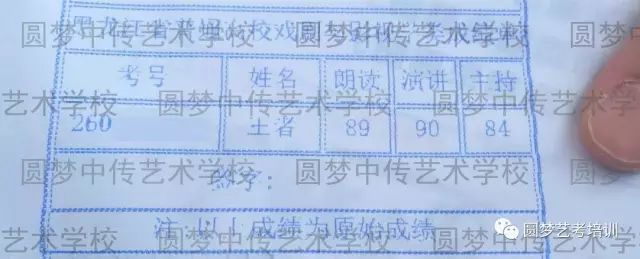 黑龙江省普通高校戏剧与影视学类成绩单
考号 姓名 朗读 演讲 主持
260 王者 89 90 84
签字：
注：以上成绩为原始成绩
圆梦中传艺术学校 圆梦中传艺术学校
艺术学校 圆梦中传艺术学校 圆梦中传
圆梦中传艺术学校 圆梦中传艺术学校
艺术学校 圆梦中传艺术学校 圆梦中传
圆梦艺考培训